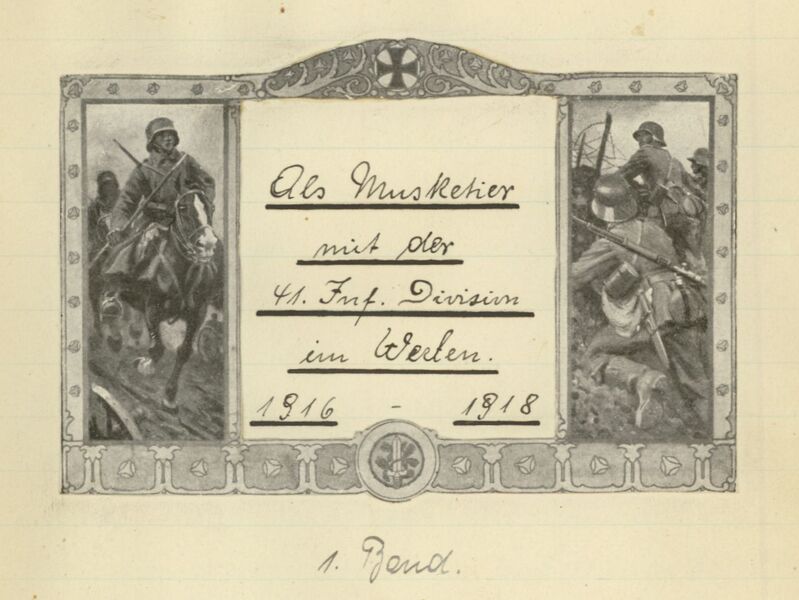 Als Musketier
mit der
41. Inf. Division
im Westen.
1916 - 1918
1. Band.